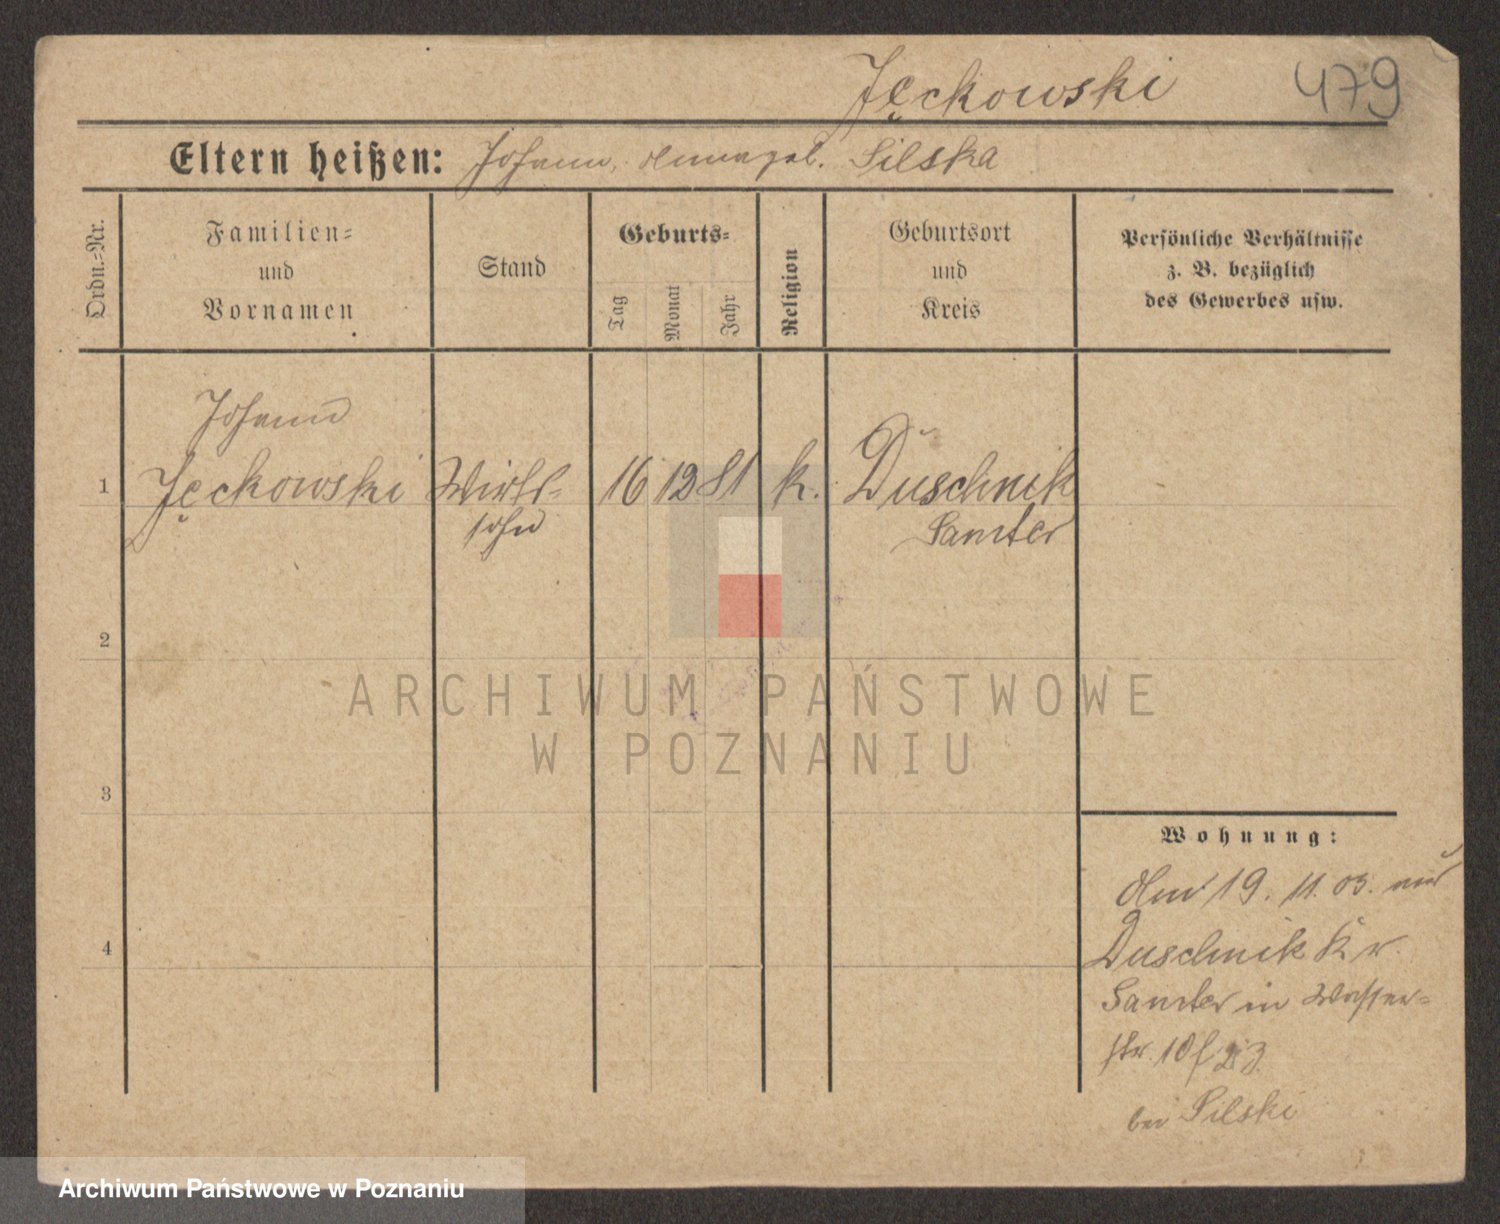 Jęckowski 479
Eltern heißen: Johann, Anna geb. Silska
Ordn.-Nr.
Familien-
und
Vornamen
Stand
Geburts-
Tag
Monat
Jahr
Religion
Geburtsort
und
Kreis
Persönliche Verhältnisse
z. B. bezüglich
des Gewerbes usw.
Johann
1 Jęckowski Wirts- 16 12 81 k. Duschnik
sohn Samter
2
ARCHIWUM PAŃSTWOWE
W POZNANIU
3
Wohnung:
Am 19. 11. 03. aus
Duschnik Kr.
Samter in Wasser-
str. 10
4
bei Silski
Archiwum Państwowe w Poznaniu